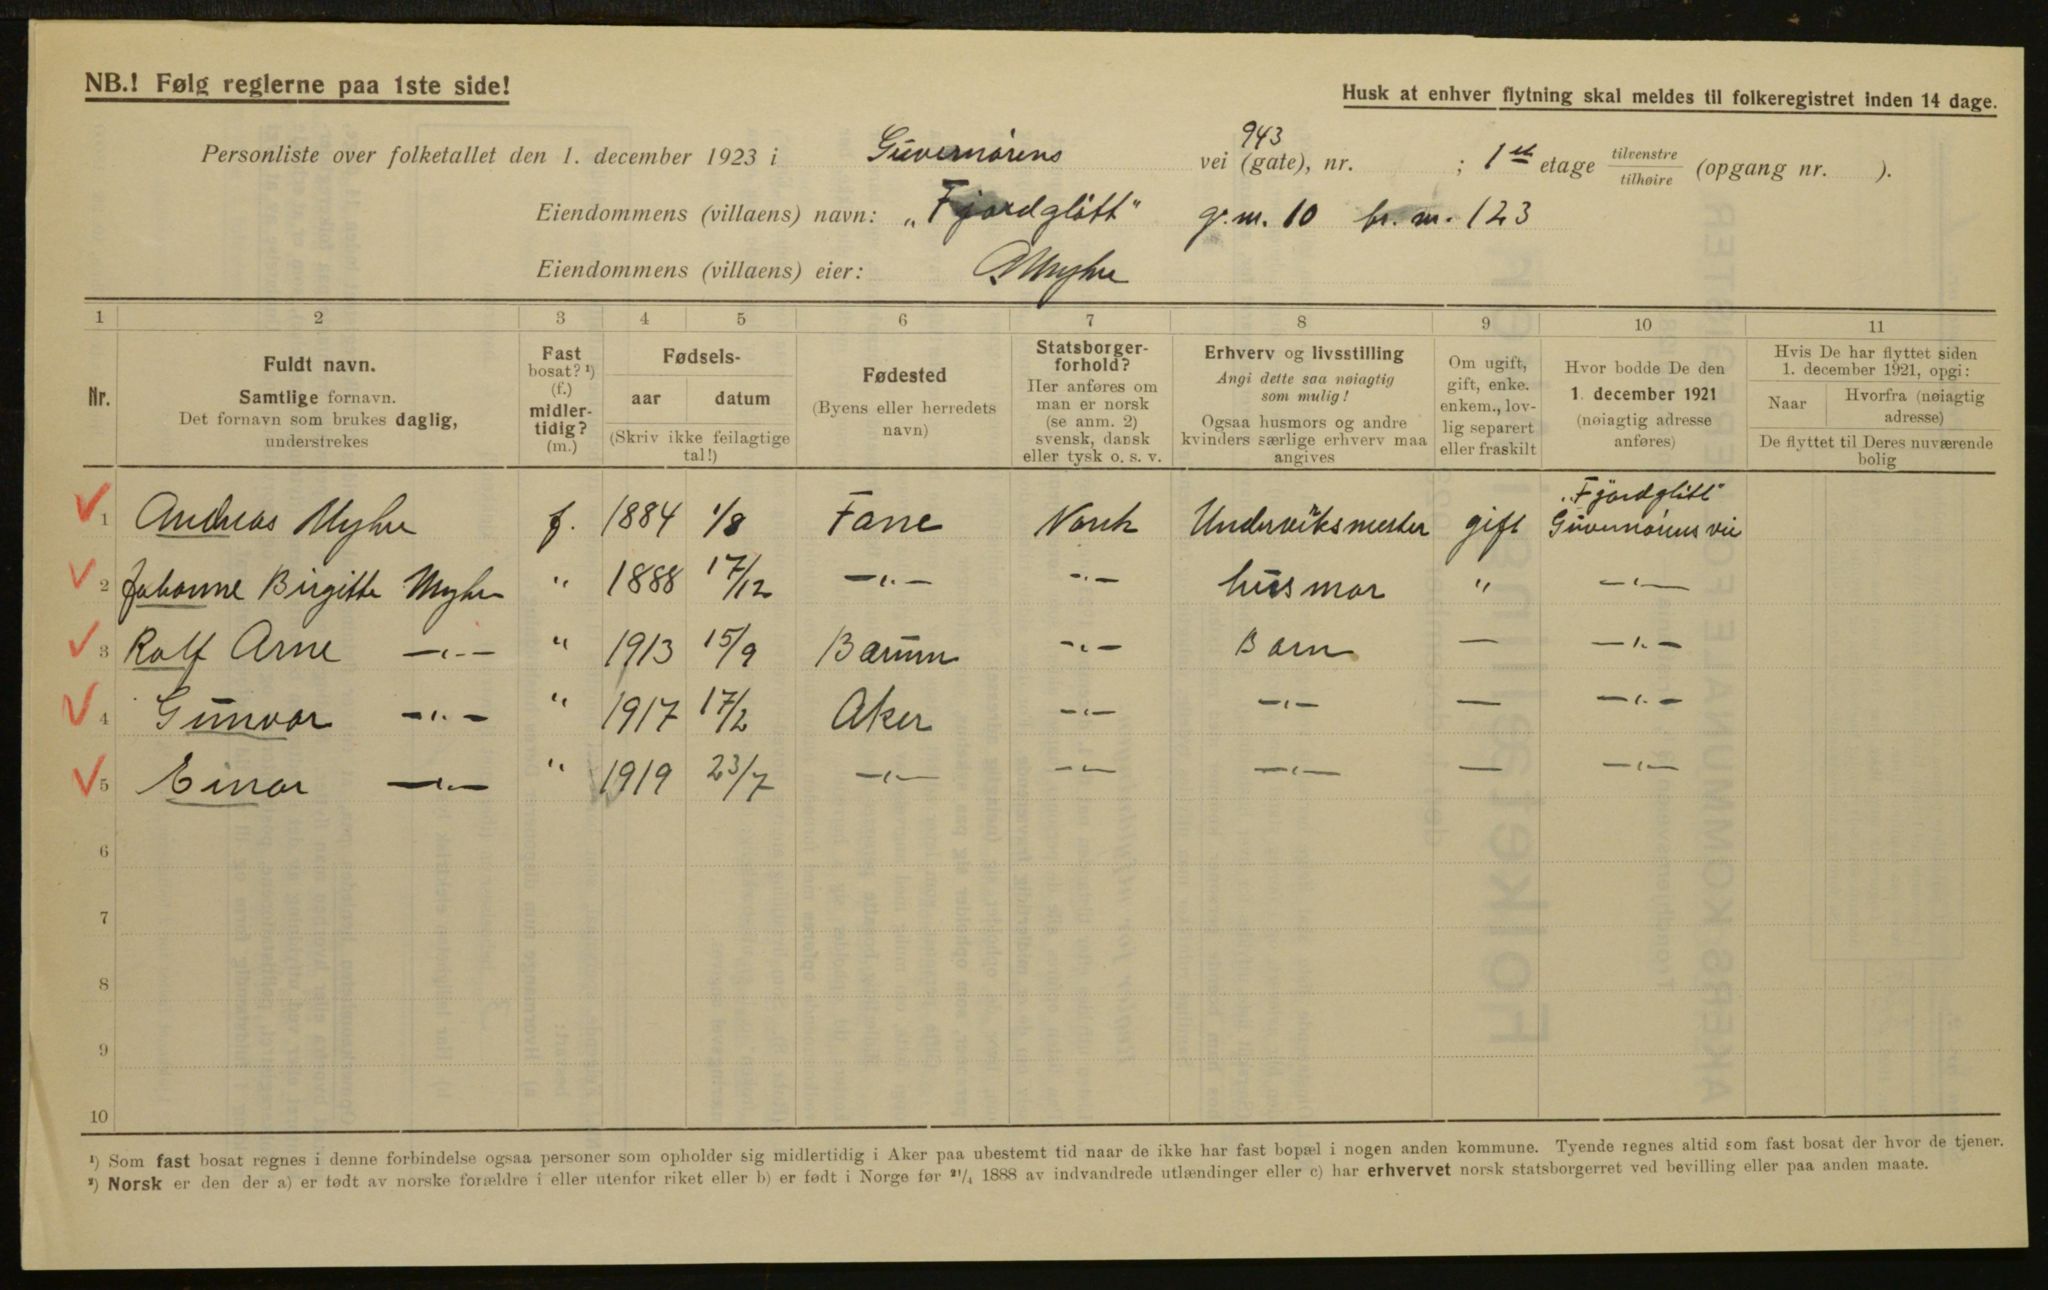 NB.! Følg reglerne paa 1ste side!
Husk at enhver flytning skal meldes til folkeregistret inden 14 dage.
943
Personliste over folketallet den 1. december 1923 i Guvernørens vei (gate), nr. ; 1ste etage tilvenstre / tilhøire (opgang nr. ).
Eiendommens (villaens) navn: „Fjordglött" gr. nr. 10 br. nr. 123
Eiendommens (villaens) eier: A Myhre
1 2 3 4 5 6 7 8 9 10 11
Nr.
Fuldt navn.
Samtlige fornavn.
Det fornavn som brukes daglig,
understrekes
Fast
bosat? ¹)
(f.)
midler-
tidig?
(m.)
Fødsels-
aar datum
(Skriv ikke feilagtige
tal!)
Fødested
(Byens eller herredets
navn)
Statsborger-
forhold?
Her anføres om
man er norsk
(se anm. 2)
svensk, dansk
eller tysk o. s. v.
Erhverv og livsstilling
Angi dette saa nøiagtig
som mulig!
Ogsaa husmors og andre
kvinders særlige erhverv maa
angives
Om ugift,
gift, enke.
enkem., lov-
lig separert
eller fraskilt
Hvor bodde De den
1. december 1921
(nøiagtig adresse
anføres)
Hvis De har flyttet siden
1. december 1921, opgi:
Naar
Hvorfra (nøiagtig
adresse)
De flyttet til Deres nuværende
bolig
„Fjordglitt"
1 Andreas Myhre f. 1884 1/8 Fane Norsk gift Guvernørens vei
2 Johanne Birgitte Myhre " 1888 17/12 —"— —"— husmor " —"—
3 Rolf Arne —"— " 1913 15/9 Bærum —"— Barn — —"—
4 Gunvor —"— " 1917 17/2 Aker —"— —"— — —"—
5 Einar —"— " 1919 23/7 —"— —"— —"— — —"—
6
7
8
9
10
¹) Som fast bosat regnes i denne forbindelse ogsaa personer som opholder sig midlertidig i Aker paa ubestemt tid naar de ikke har fast bopæl i nogen anden kommune. Tyende regnes altid som fast bosat der hvor de tjener.
²) Norsk er den der a) er født av norske forældre i eller utenfor riket eller b) er født i Norge før ²¹/₄ 1888 av indvandrede utlændinger eller c) har erhvervet norsk statsborgerret ved bevilling eller paa anden maate.